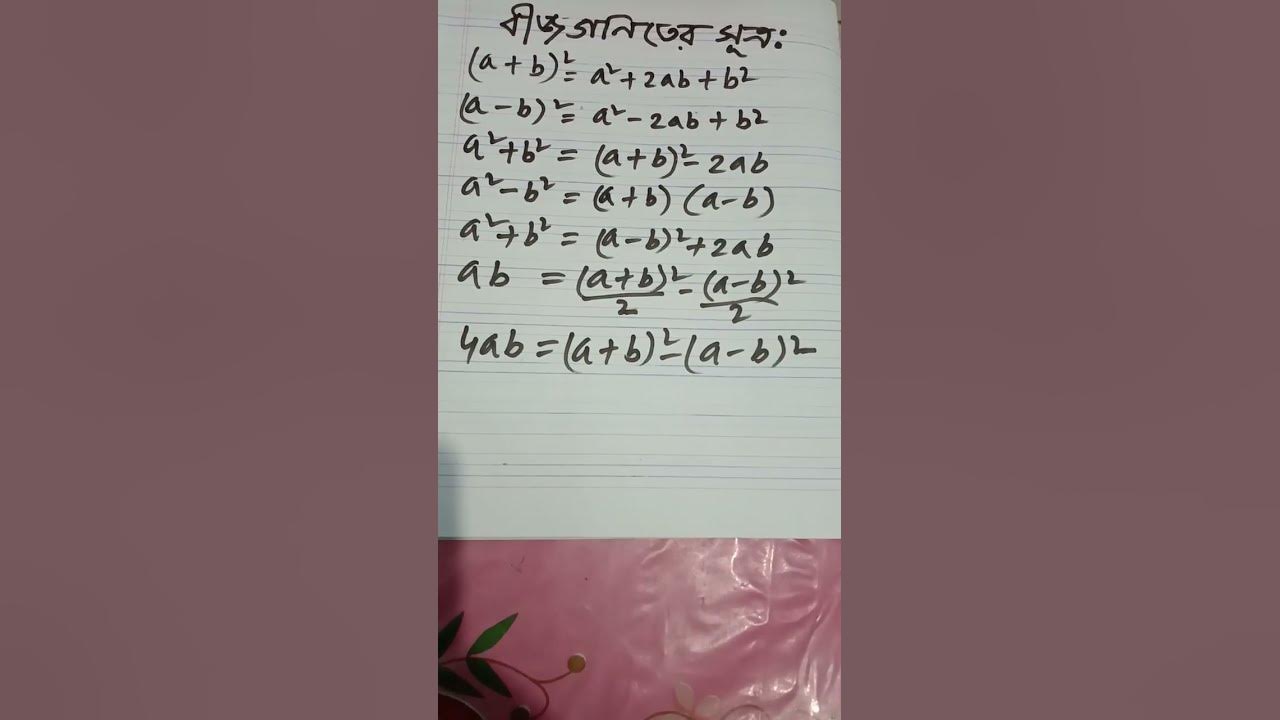 বীজগনিতের সূত্র:
(a + b)² = a² + 2ab + b²
(a - b)² = a² - 2ab + b²
a² + b² = (a + b)² - 2ab
a² - b² = (a + b) (a - b)
a² + b² = (a - b)² + 2ab
ab = (a + b)²/2 - (a - b)²/2
4ab = (a + b)² - (a - b)²